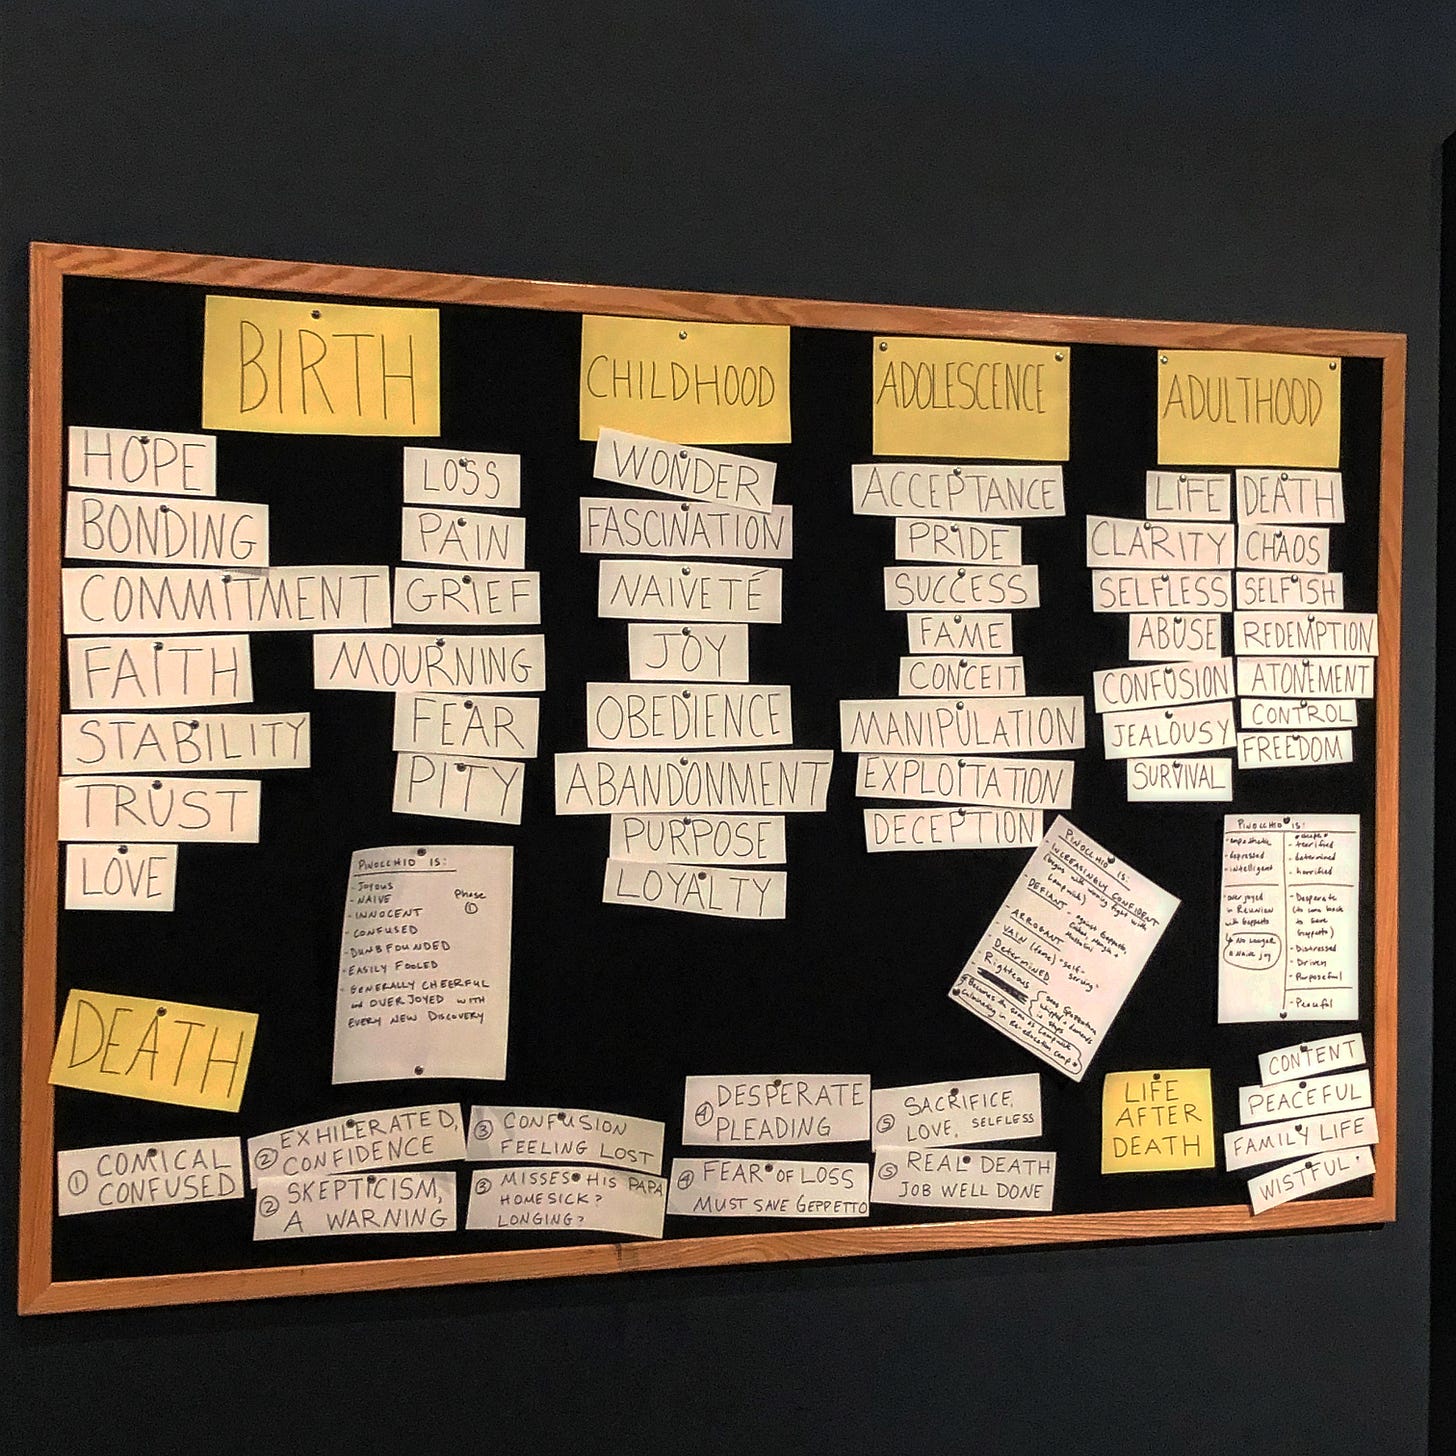 BIRTH
HOPE
BONDING
COMMITMENT
FAITH
STABILITY
TRUST
LOVE
LOSS
PAIN
GRIEF
MOURNING
FEAR
PITY
PINOCCHIO IS:
- JOYOUS
- NAIVE
- INNOCENT
- CONFUSED
- DUMBFOUNDED
- EASILY FOOLED
- GENERALLY CHEERFUL
and OVERJOYED WITH
EVERY NEW DISCOVERY
Phase
①
CHILDHOOD
WONDER
FASCINATION
NAIVETÉ
JOY
OBEDIENCE
ABANDONMENT
PURPOSE
LOYALTY
ADOLESCENCE
ACCEPTANCE
PRIDE
SUCCESS
FAME
CONCEIT
MANIPULATION
EXPLOITATION
DECEPTION
PINOCCHIO IS:
- INCREASINGLY CONFIDENT
(begins with winning fight with
Lampwick)
- DEFIANT - against Geppetto,
- ARROGANT
- VAIN (fame) - self-
serving
- Determined
- Righteous
ADULTHOOD
LIFE
CLARITY
SELFLESS
ABUSE
CONFUSION
JEALOUSY
SURVIVAL
DEATH
CHAOS
SELFISH
REDEMPTION
ATONEMENT
CONTROL
FREEDOM
PINOCCHIO IS:
- empathetic
- depressed
- intelligent
- over joyed
in REUNION
with Geppetto
No longer
a naive joy
- terrified
- determined
- horrified
- Desperate
(to come back
to save
Geppetto)
- Distressed
- Driven
- Purposeful
- Peaceful
DEATH
① COMICAL
CONFUSED
② EXHILERATED,
CONFIDENCE
② SKEPTICISM,
A WARNING
③ CONFUSION
FEELING LOST
③ MISSES HIS PAPA
HOMESICK?
LONGING?
④ DESPERATE
PLEADING
④ FEAR OF LOSS
MUST SAVE GEPPETTO
⑤ SACRIFICE,
LOVE, SELFLESS
⑤ REAL DEATH
JOB WELL DONE
LIFE
AFTER
DEATH
CONTENT
PEACEFUL
FAMILY LIFE
WISTFUL.